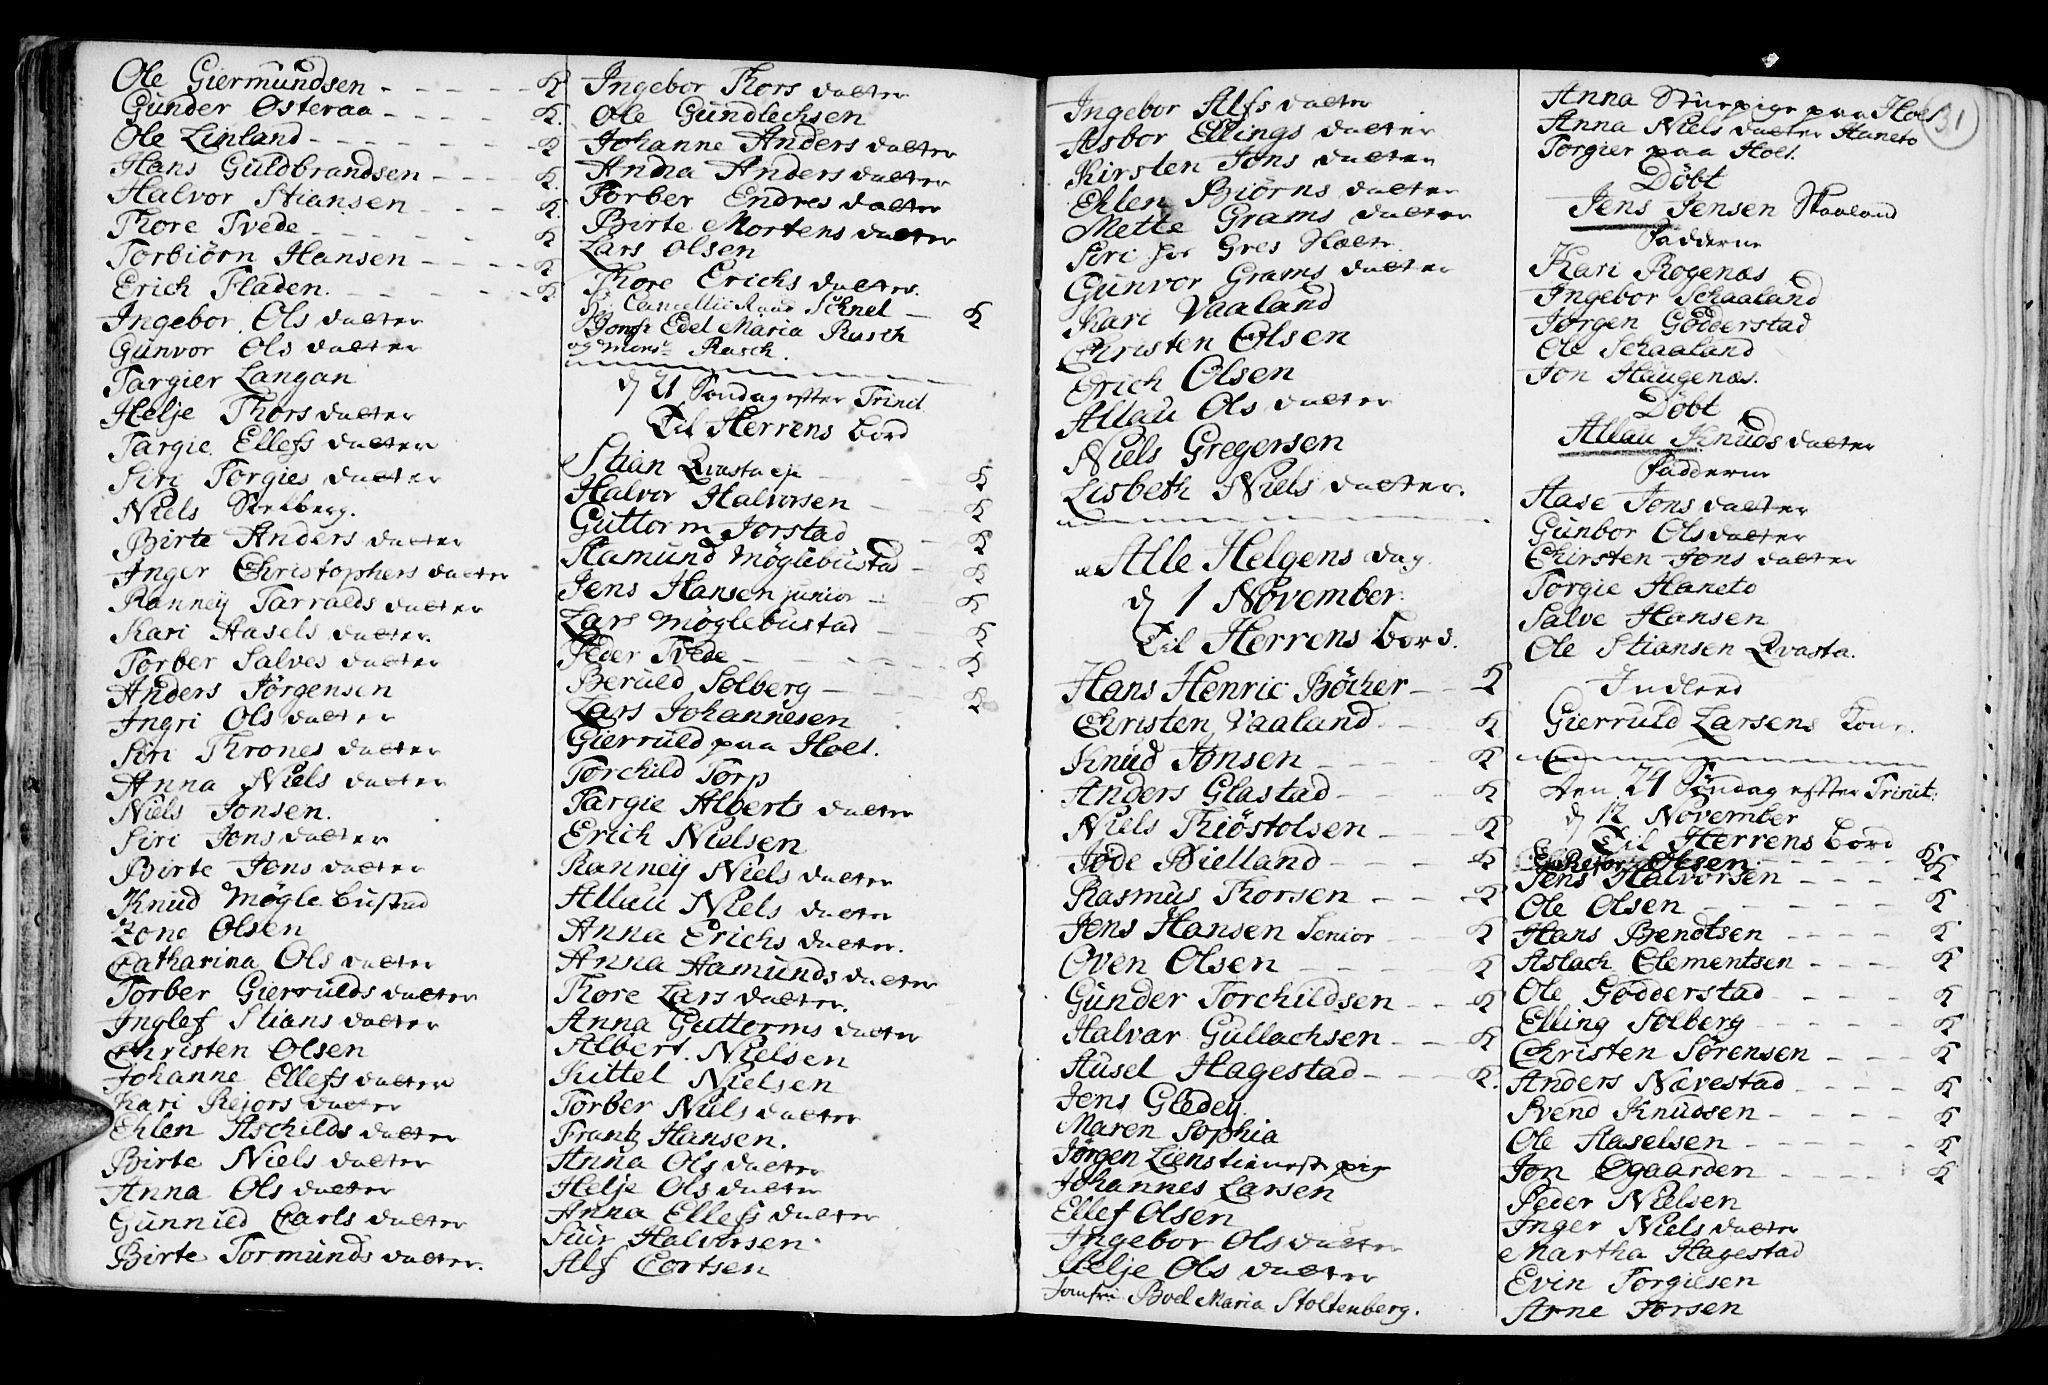 Ole Giermundsen - - - - - K
Gunder Østeraa - - - - K.
Ole Linland - - - - - - - K
Hans Guldbrandsen - - - - K.
Halvor Stiansen - - - K.
Thore Tvede - - - - - K
Torbiørn Hansen - - - - K
Erich Fladen. - - - - - K.
Ingebor Ols datter
Gunvor Ols datter
Targier Langan
Helje Thors datter
Targie Ellefs datter
Siri Torgies datter
Niels
Birte Anders datter
Inger Christophers datter
Ranney Tarralds datter
Kari Aasels datter.
Torber Salves datter
Anders Jørgensen
Ingri Ols datter
Siri Thrones datter
Anna Niels datter
Niels Jonsen.
Siri Jons datter
Birte Jens datter
Knud Møgle bustad
Zone Olsen
Catharina Ols datter
Torber Gierrulds datter
Inglef Stians datter
Christen Olsen
Johanne Ellefs datter
Kari Rejors datter
Ehlen Aschilds datter
Birte Niels datter
Anna Ols datter
Gunnild Carls datter
Birte Tormunds datter.
Ingebor Thors datter
Ole Gundlechsen
Johanne Anders datter
Anna Anders datter
Torber Endres datter
Birte Mortens datter
Lars Olsen
Thore Erichs datter.
Hr Cancellie Raad Schnel - K
Jomfr Edel Maria Rasch
og Rasch.
d 21 Søndag efter Trinit
Til Herrens bord
Stian - - - K
Halvor Halvorsen - K
Guttorm Jorstad - K
Aamund Møglebustad - K
Jens Hansen junior - - K
Lars Møglebustad - - K
Peder Tvede - - - - - K
Beruld Solberg - - - K
Lars Johannesen
Gierruld paa Hoel.
Torchild Torp
Targie Alberts datter
Erich Nielsen
Ranney Niels datter
Allau Niels datter
Anna Erichs datter.
Anna Aamunds datter
Thore Lars datter.
Anna Guttorms datter
Albert Nielsen
Kittel Nielsen
Torber Niels datter
Frantz Hansen.
Anna Ols datter
Helje Ols datter
Anna Ellefs datter
Siur Halvorsen
Alf Cortsen
Ingebor Alfs datter
Asbor Ellings datter
Kirsten Jons datter
Ehlen Biørns datter
Mette Grams datter
Siri
Gunvor Grams datter
Kari Vaaland
Christen Olsen
Erich Olsen
Allau Ols datter
Niels Gregersen
Lisbeth Niels datter.
Alle Helgens dag.
d 1 November.
Til Herrens bord.
Hans Henric Bøcher - - K
Christen Vaaland - - K
Knud Jonsen - - - - K
Anders Glastad - - - - K
Niels Thiøstolsen - - - K
Jøde Bielland - - - - K
Rasmus Thorsen - - - K
Jens Hansen Senior - - K
Oven Olsen - - - - - K
Gunder Torchildsen - - - K
Halvar Gullachsen - - - K
Ausel Hagestad - - - K.
Jens Gledey
Maren Sophia
Jørgen Liens
Johannes Larsen
Ellef Olsen
Ingebor Ols datter
Helje Ols datter
Jomfru Boel Maria Stoltenberg.
31
Anna Stuepige paa Hoel
Anna Niels datter Haneto
Torgier paa Hoel.
Døbt
Jens Jensen Skaaland
Fadderne
Kari Bogenæs
Ingebor Schaaland
Jørgen Godderstad
Ole Schaaland
Jon Haugenæs.
Døbt
Allau Knuds datter
Fadderne
Aase Jons datter
Gunbor Ols datter
Chirsten Jons datter
Torgie Haneto
Salve Hansen
Ole Stiansen Qvasta.
Indleed
Gierruld Larsens Kone.
Den 24 Søndag efter Trinit:
d 12 November
Til Herrens bord
Olsen - - - - - K
Jens Halvorsen - - - - K
Ole Olsen - - - - - - K
Hans Bendtsen - - - - K
Aslach Clementsen - - - - K
Ole Godderstad - - - - K
Elling Solberg - - - - - K
Christen Sørensen - - - K
Anders Nærestad - - - - K
Svend Knudsen - - - - - K
Ole Aaselsen - - - - - - K
Jon Øgaarden - - - - - K
Peder Nielsen
Inger Niels datter
Martha Hagestad
Evin Torgiesen
Arne Torsen